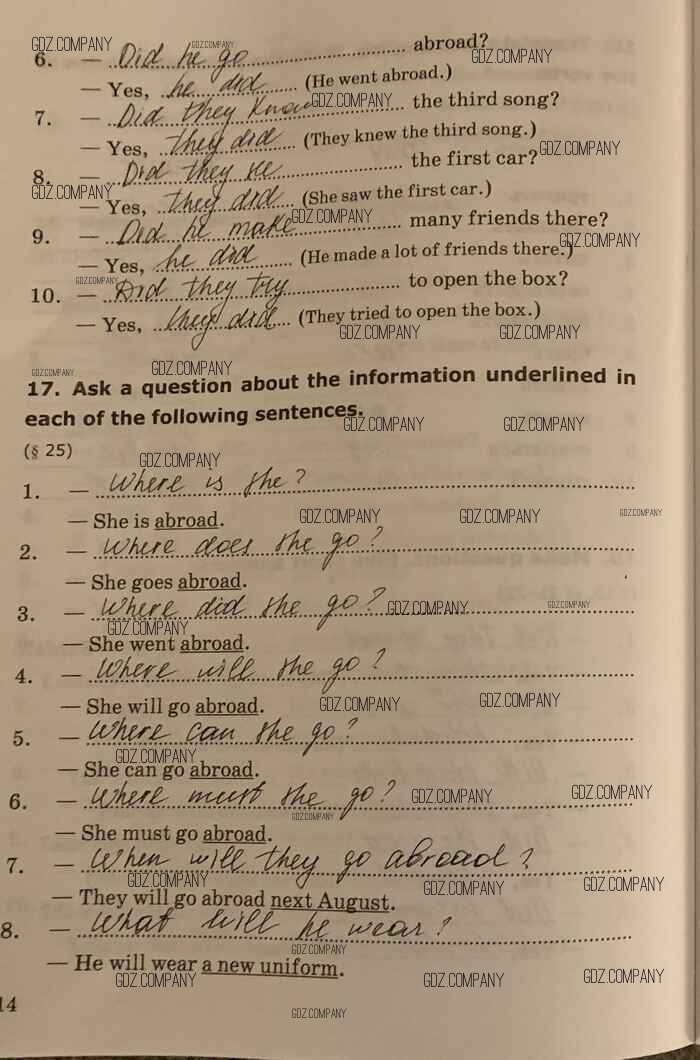 6. — Did he go abroad?
— Yes, he did (He went abroad.)
7. — Did they know the third song?
— Yes, they did (They knew the third song.)
8. — Did they see the first car?
— Yes, they did (She saw the first car.)
9. — Did he make many friends there?
— Yes, he did (He made a lot of friends there.)
10. — Did they try to open the box?
— Yes, they did (They tried to open the box.)
17. Ask a question about the information underlined in
each of the following sentences.
(§ 25)
1. — Where is she?
— She is abroad.
2. — Where does she go?
— She goes abroad.
3. — Where did she go?
— She went abroad.
4. — Where will she go?
— She will go abroad.
5. — Where can she go?
— She can go abroad.
6. — Where must she go?
— She must go abroad.
7. — When will they go abroad?
— They will go abroad next August.
8. — What will he wear?
— He will wear a new uniform.
14
GDZ.COMPANY